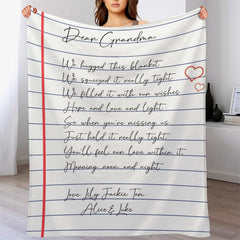 Dear Grandma
We hugged this blanket
We squeezed it really tight
We filled it with our wishes
Hope and love and light
So when you're missing us
Just hold it really tight
You'll feel our love within it
Morning noon and night
Love Lily Jackie Tom
Alice & Luke